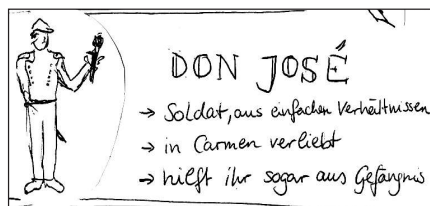 DON JOSÉ
→ Soldat, aus einfachen Verhältnissen
→ in Carmen verliebt
→ hilft ihr sogar aus Gefängnis